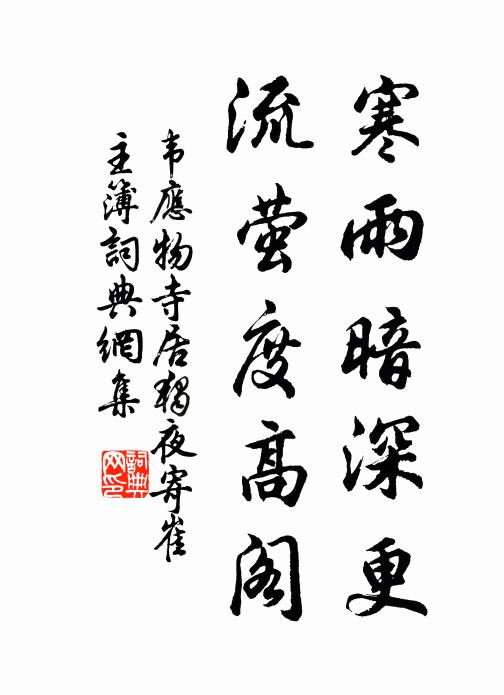 寒雨暗深更
流萤度高阁
韦應物寺居独夜寄崔
主簿詞典網集
詞典
网印